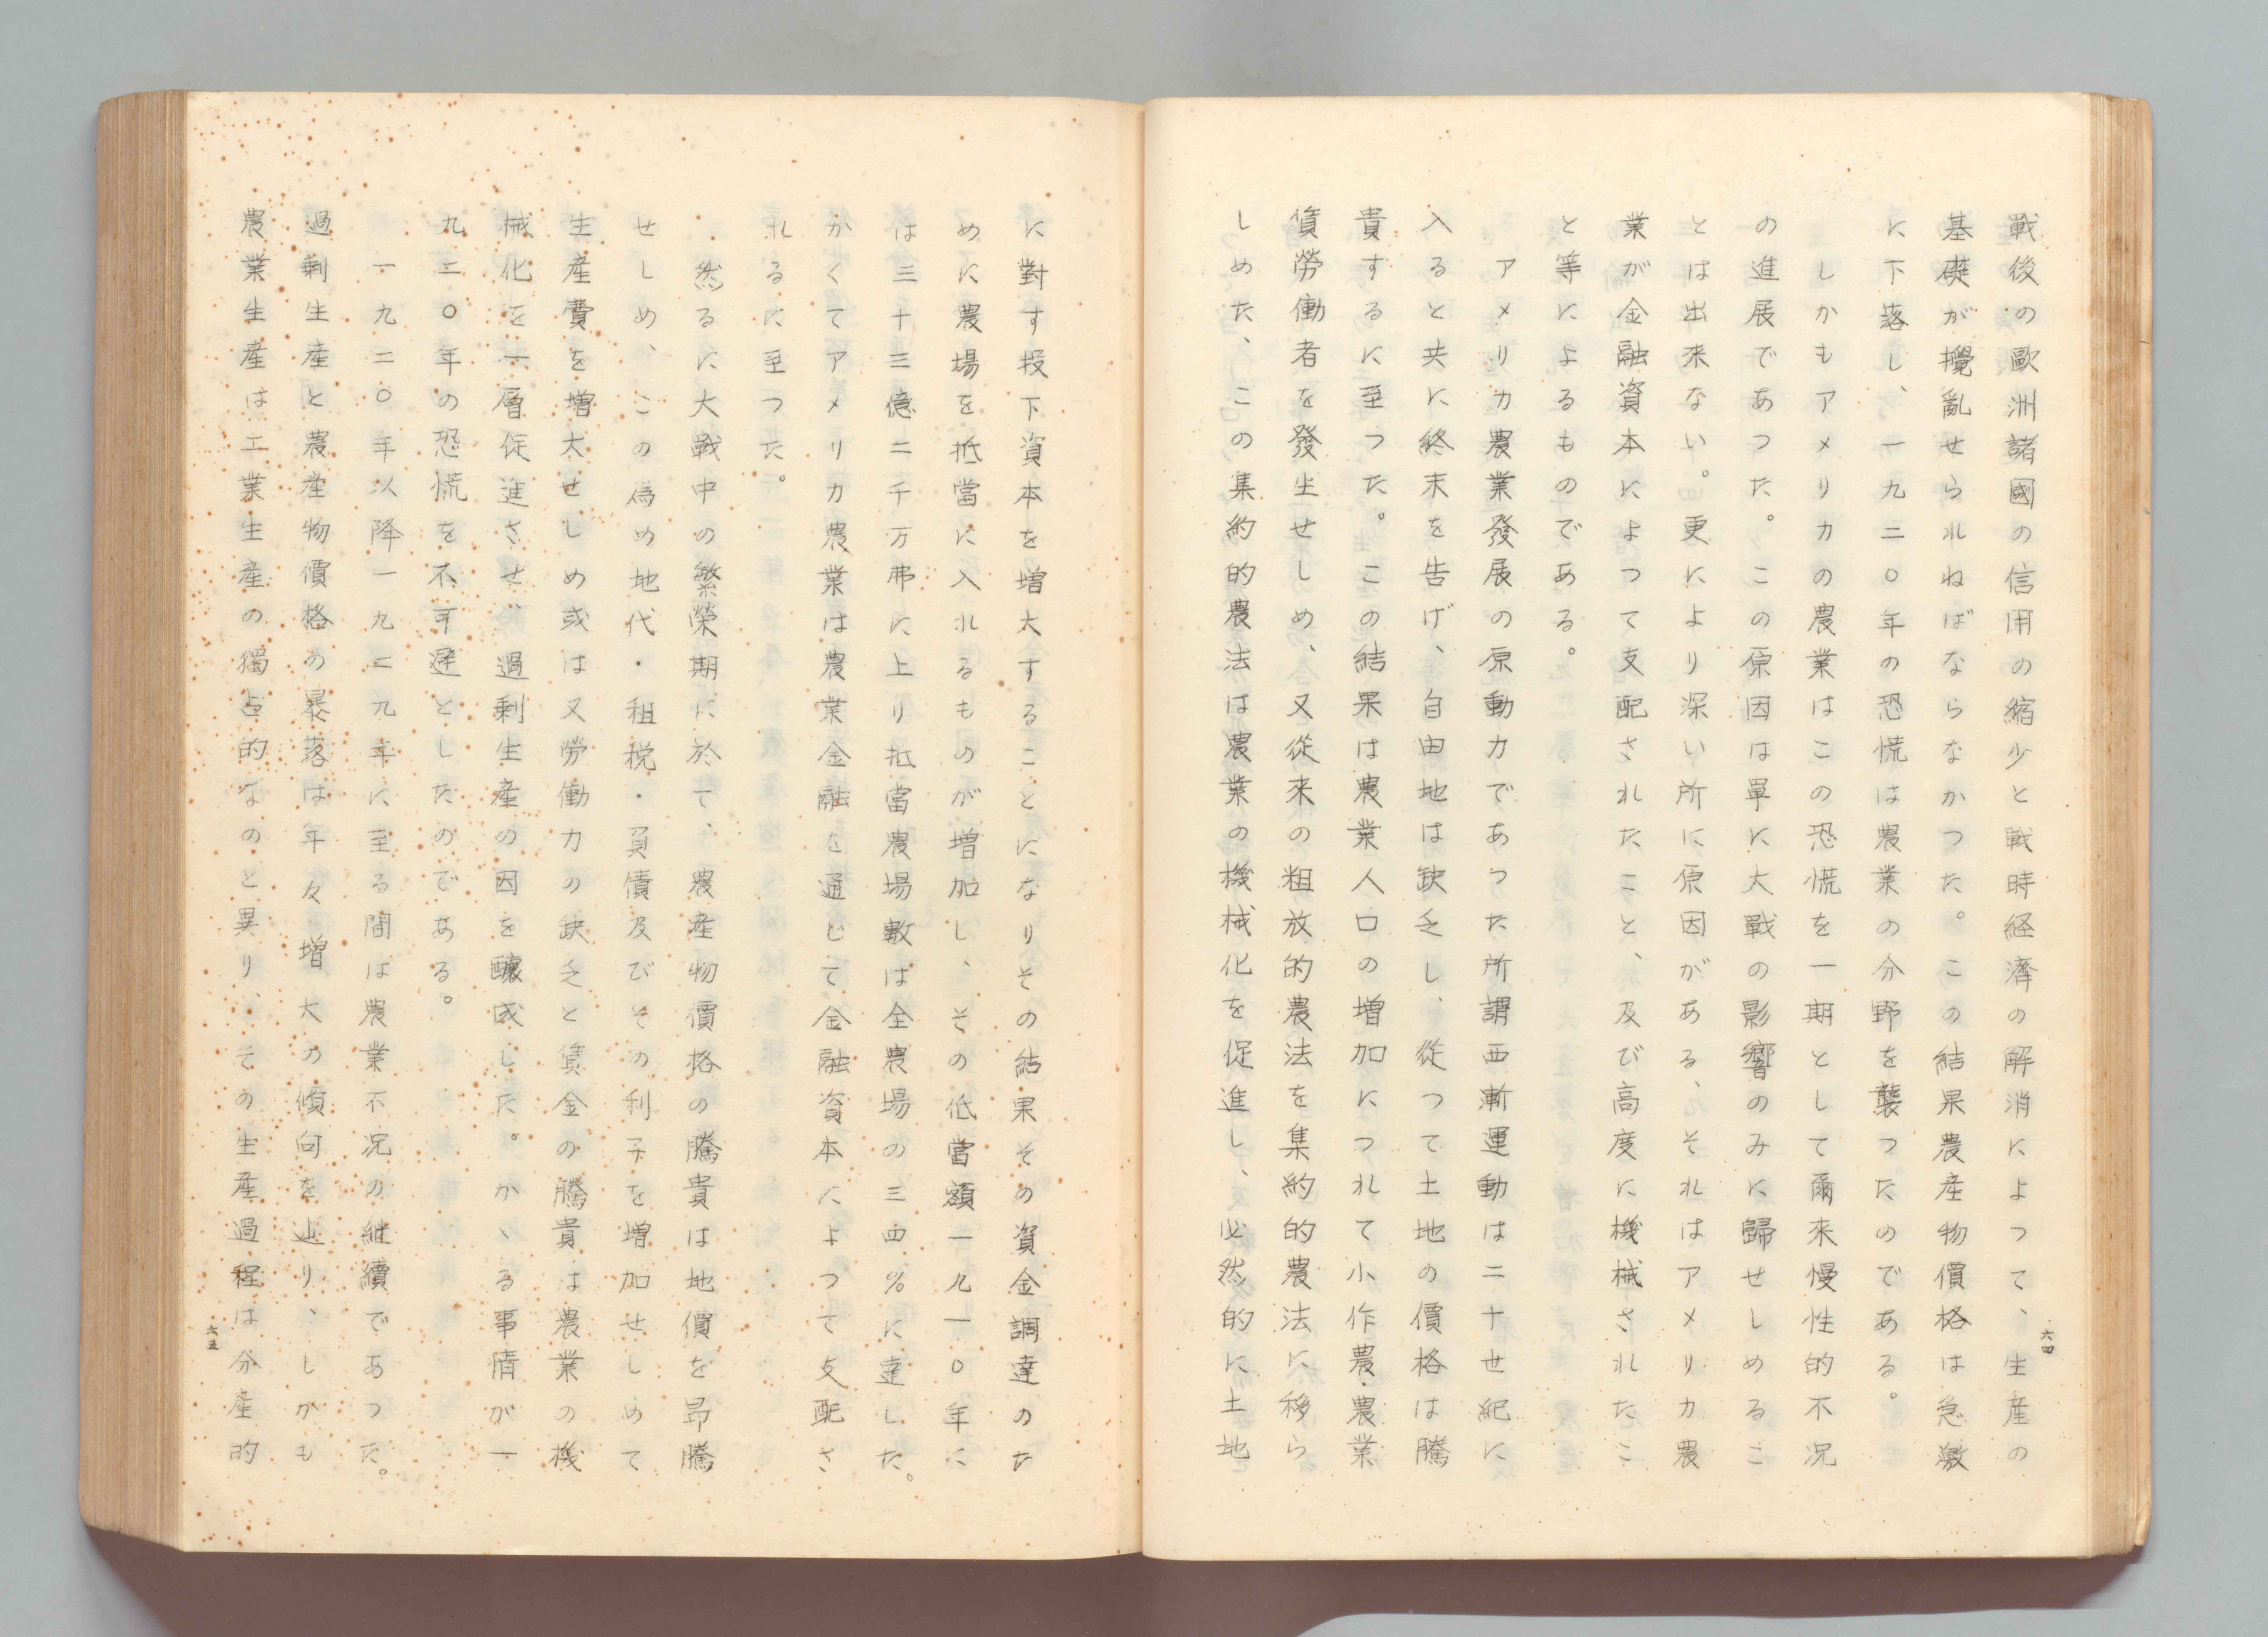 戰後の歐洲諸國の信用の縮少と戰時経濟の解消によつて、生産の
基礎が攪亂せられねばならなかつた。この結果農産物價格は急激
に下落し、一九二〇年の恐慌は農業の分野を襲つたのである。
しかもアメリカの農業はこの恐慌を一期として爾来慢性的不況
の進展であつた。この原因は單に大戰の影響のみに歸せしめるこ
とは出來ない。更により深い所に原因がある、それはアメリカ農
業が金融資本によつて支配されたこと、及び高度に機械されたこ
と等によるものである。
アメリカ農業發展の原動力であつた所謂西漸運動は二十世紀に
入ると共に終末を告げ、自由地は缺乏し、從つて土地の價格は騰
貴するに至つた。この結果は農業人口の増加につれて小作農・農業
賃勞働者を發生せしめ、又從來の粗放的農法を集約的農法に移ら
しめた、この集約的農法は農業の機械化を促進し、必然的に土地
六四
に對す投下資本を増大することになりその結果その資金調達のた
めに農場を抵當に入れるものが増加し、その低當額一九一〇年に
は三十三億二千万弗に上り抵當農場數は全農場の三四%に達した。
かくてアメリカ農業は農業金融を通じて金融資本によつて支配さ
れるに至つた。
然るに大戰中の繁榮期に於て、農産物價格の騰貴は地價を昂騰
せしめ、この為め地代・租税・負債及びその利子を増加せしめて
生産費を増大せしめ或は又勞働力の缺乏と賃金の騰貴は農業の機
械化を一層促進させ、過剰生産の因を醸成した。かゝる事情が一
九二〇年の恐慌を不可避としたのである。
一九二〇年以降一九二九年に至る間は農業不況の継續であつた。
過剰生産と農産物價格の暴落は年々増大の傾向を辿り、しかも
農業生産は工業生産の獨占的なのと異り、その生産過程は分産的
六五